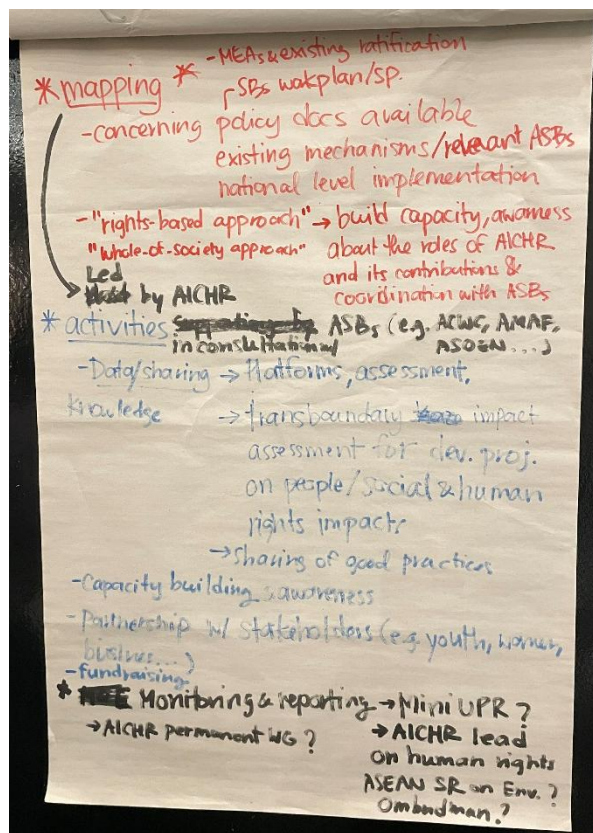 - MEAs & existing ratification
* mapping * ┌ SBs wokplan/SP.
- concerning policy docs available
existing mechanisms/relevant ASBs
national level implementation
- "rights-based approach" → build capacity, awarness
"whole-of-society approach" about the roles of AICHR
and its contributions &
coordination with ASBs
Led
by AICHR
* activities ASBs (e.g. ACWC, AMAF,
in consultation w/ ASOEN...)
- Data/sharing → Platforms, assessment,
knowledge → transboundary impact
assessment for dev. proj.
on people/social & human
rights impacts
→ sharing of good practices
- Capacity building & awareness
- Partnership w/ stakeholders (e.g. youth, women,
busines...)
- fundraising
* Monitoring & reporting → Mini UPR ?
→ AICHR permanent WG ? → AICHR lead
on human rights
ASEAN SR on Env. ?
Ombudman. ?